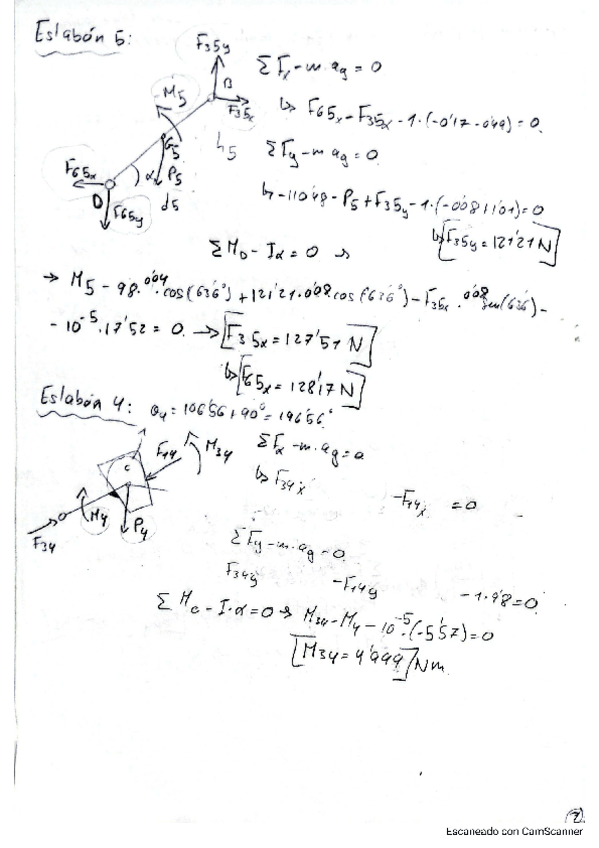 Eslabón 5:
F35y
B
F35x
M5
G5
h5
α
P5
d5
F65x
D
F65y
ΣFx - m·ag = 0
↳ F65x - F35x - 1·(-0'17 - 0'49) = 0.
ΣFy - m·ag = 0
↳ -110'48 - P5 + F35y - 1·(-0'081101) = 0
↳ [F35y = 121'21 N]
ΣMD - Iα = 0 →
→ M5 - 98·0'04·cos(63'6°) + 121'21·0'08 cos(63'6°) - F35x·0'08 sen(63'6) -
- 10^-5·17'52 = 0. → [F35x = 127'51 N]
↳ [F65x = 128'17 N]
Eslabón 4: θ4 = 106'56 + 90° = 196'56°
F14
M34
C
M4
P4
F34
ΣFx - m·ag = 0
↳ F34x - F14x = 0
ΣFy - m·ag = 0.
F34y - F14y - 1·9'8 = 0
ΣMc - I·α = 0 → M34 - M4 - 10^-5·(-5'57) = 0
[M34 = 4'999] Nm.
Escaneado con CamScanner